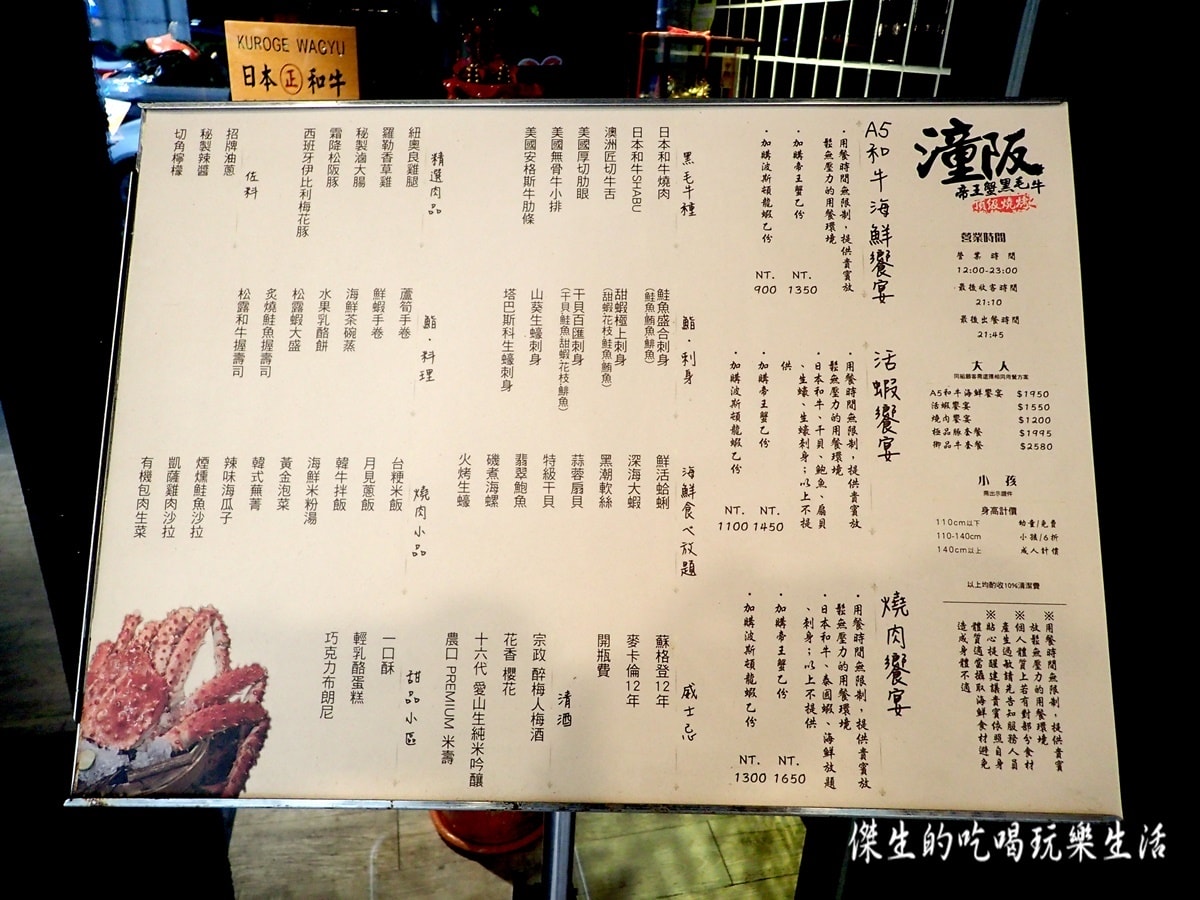 KUROGE WAGYU
日本正和牛
潼阪
帝王蟹黑毛牛
頂級燒烤
營業時間
營業時間
12:00-23:00
最後收客時間
21:10
最後出餐時間
21:45
大人
同組顧客需選擇相同用餐方案
A5和牛海鮮饗宴 $1950
活蝦饗宴 $1550
燒肉饗宴 $1200
極品豚套餐 $1995
御品牛套餐 $2580
小孩
需出示證件
身高計價
110cm以下 幼童/免費
110-140cm 小孩/6折
140cm以上 成人計價
以上均酌收10%清潔費
※用餐時間無限制，提供貴賓
放鬆無壓力的用餐環境
※個人體質上若有對部分食材
產生過敏請先告知服務人員
※貼心提醒建議貴賓依照自身
體質適當攝取海鮮食材避免
造成身體不適
A5和牛海鮮饗宴
・用餐時間無限制，提供貴賓放
鬆無壓力的用餐環境
・加購帝王蟹乙份 NT. 1350
・加購波斯頓龍蝦乙份 NT. 900
活蝦饗宴
・用餐時間無限制，提供貴賓放
鬆無壓力的用餐環境
・日本和牛、干貝、鮑魚、扇貝
、生蠔、生蠔刺身；以上不提
供
・加購帝王蟹乙份 NT. 1450
・加購波斯頓龍蝦乙份 NT. 1100
燒肉饗宴
・用餐時間無限制，提供貴賓放
鬆無壓力的用餐環境
・日本和牛、泰國蝦、海鮮放題
、刺身；以上不提供
・加購帝王蟹乙份 NT. 1650
・加購波斯頓龍蝦乙份 NT. 1300
黑毛牛種
日本和牛燒肉
日本和牛SHABU
澳洲匠切牛舌
美國厚切肋眼
美國無骨牛小排
美國安格斯牛肋條
精選肉品
紐奧良雞腿
羅勒香草雞
秘製滷大腸
霜降松阪豚
西班牙伊比利梅花豚
佐料
招牌油蔥
秘製辣醬
切角檸檬
鮨・刺身
鮭魚盛合刺身
(鮭魚鮪魚鯡魚)
甜蝦極上刺身
(甜蝦花枝鮭魚鮪魚)
干貝百匯刺身
(干貝鮭魚甜蝦花枝鯡魚)
山葵生蠔刺身
塔巴斯科生蠔刺身
鮨・料理
蘆筍手卷
鮮蝦手卷
海鮮茶碗蒸
水果乳酪餅
松露蝦大盛
炙燒鮭魚握壽司
松露和牛握壽司
海鮮食べ放題
鮮活蛤蜊
深海大蝦
黑潮軟絲
蒜蓉扇貝
特級干貝
翡翠鮑魚
磯煮海螺
火烤生蠔
燒肉小品
台粳米飯
月見蔥飯
韓牛拌飯
海鮮米粉湯
黃金泡菜
韓式蕪菁
辣味海瓜子
煙燻鮭魚沙拉
凱薩雞肉沙拉
有機包肉生菜
威士忌
蘇格登12年
麥卡倫12年
開瓶費
清酒
宗政 醉梅人梅酒
花香 櫻花
十六代 愛山生純米吟釀
農口 PREMIUM 米壽
甜品小區
一口酥
輕乳酪蛋糕
巧克力布朗尼
傑生的吃喝玩樂生活